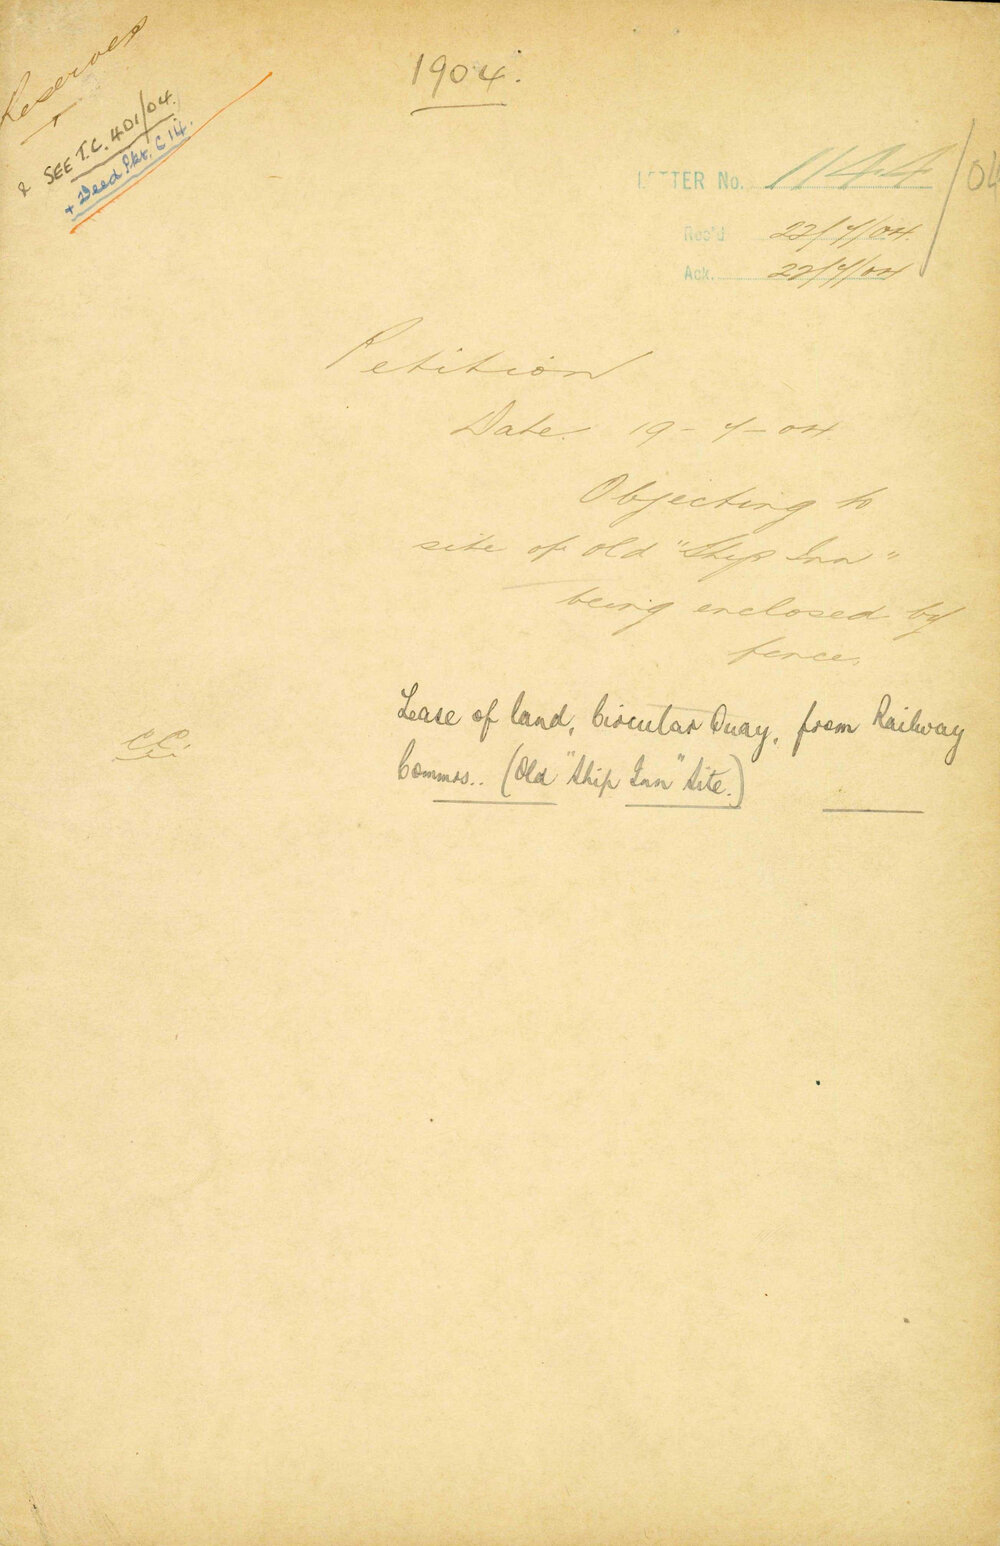 Reserves
1904.
& SEE T.C. 401/04.
+ Deed Pkt. C 14.
LETTER No. 1144/04
Rec'd 22/4/04.
Ack. 22/4/04
Petition
Date 19-4-04
Objecting to
site of old "Ship Inn"
being enclosed by
fence.
Lease of land, Circular Quay, from Railway
Commrs.. (Old "Ship Inn" Site.)